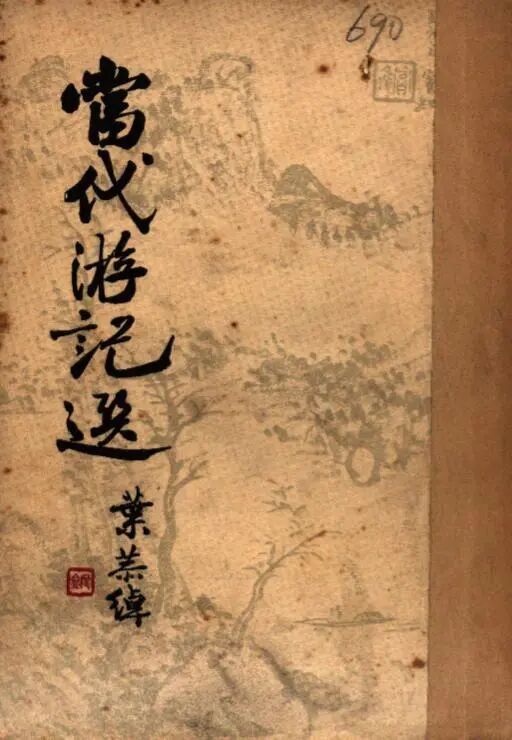 690
當代游記選
葉恭綽